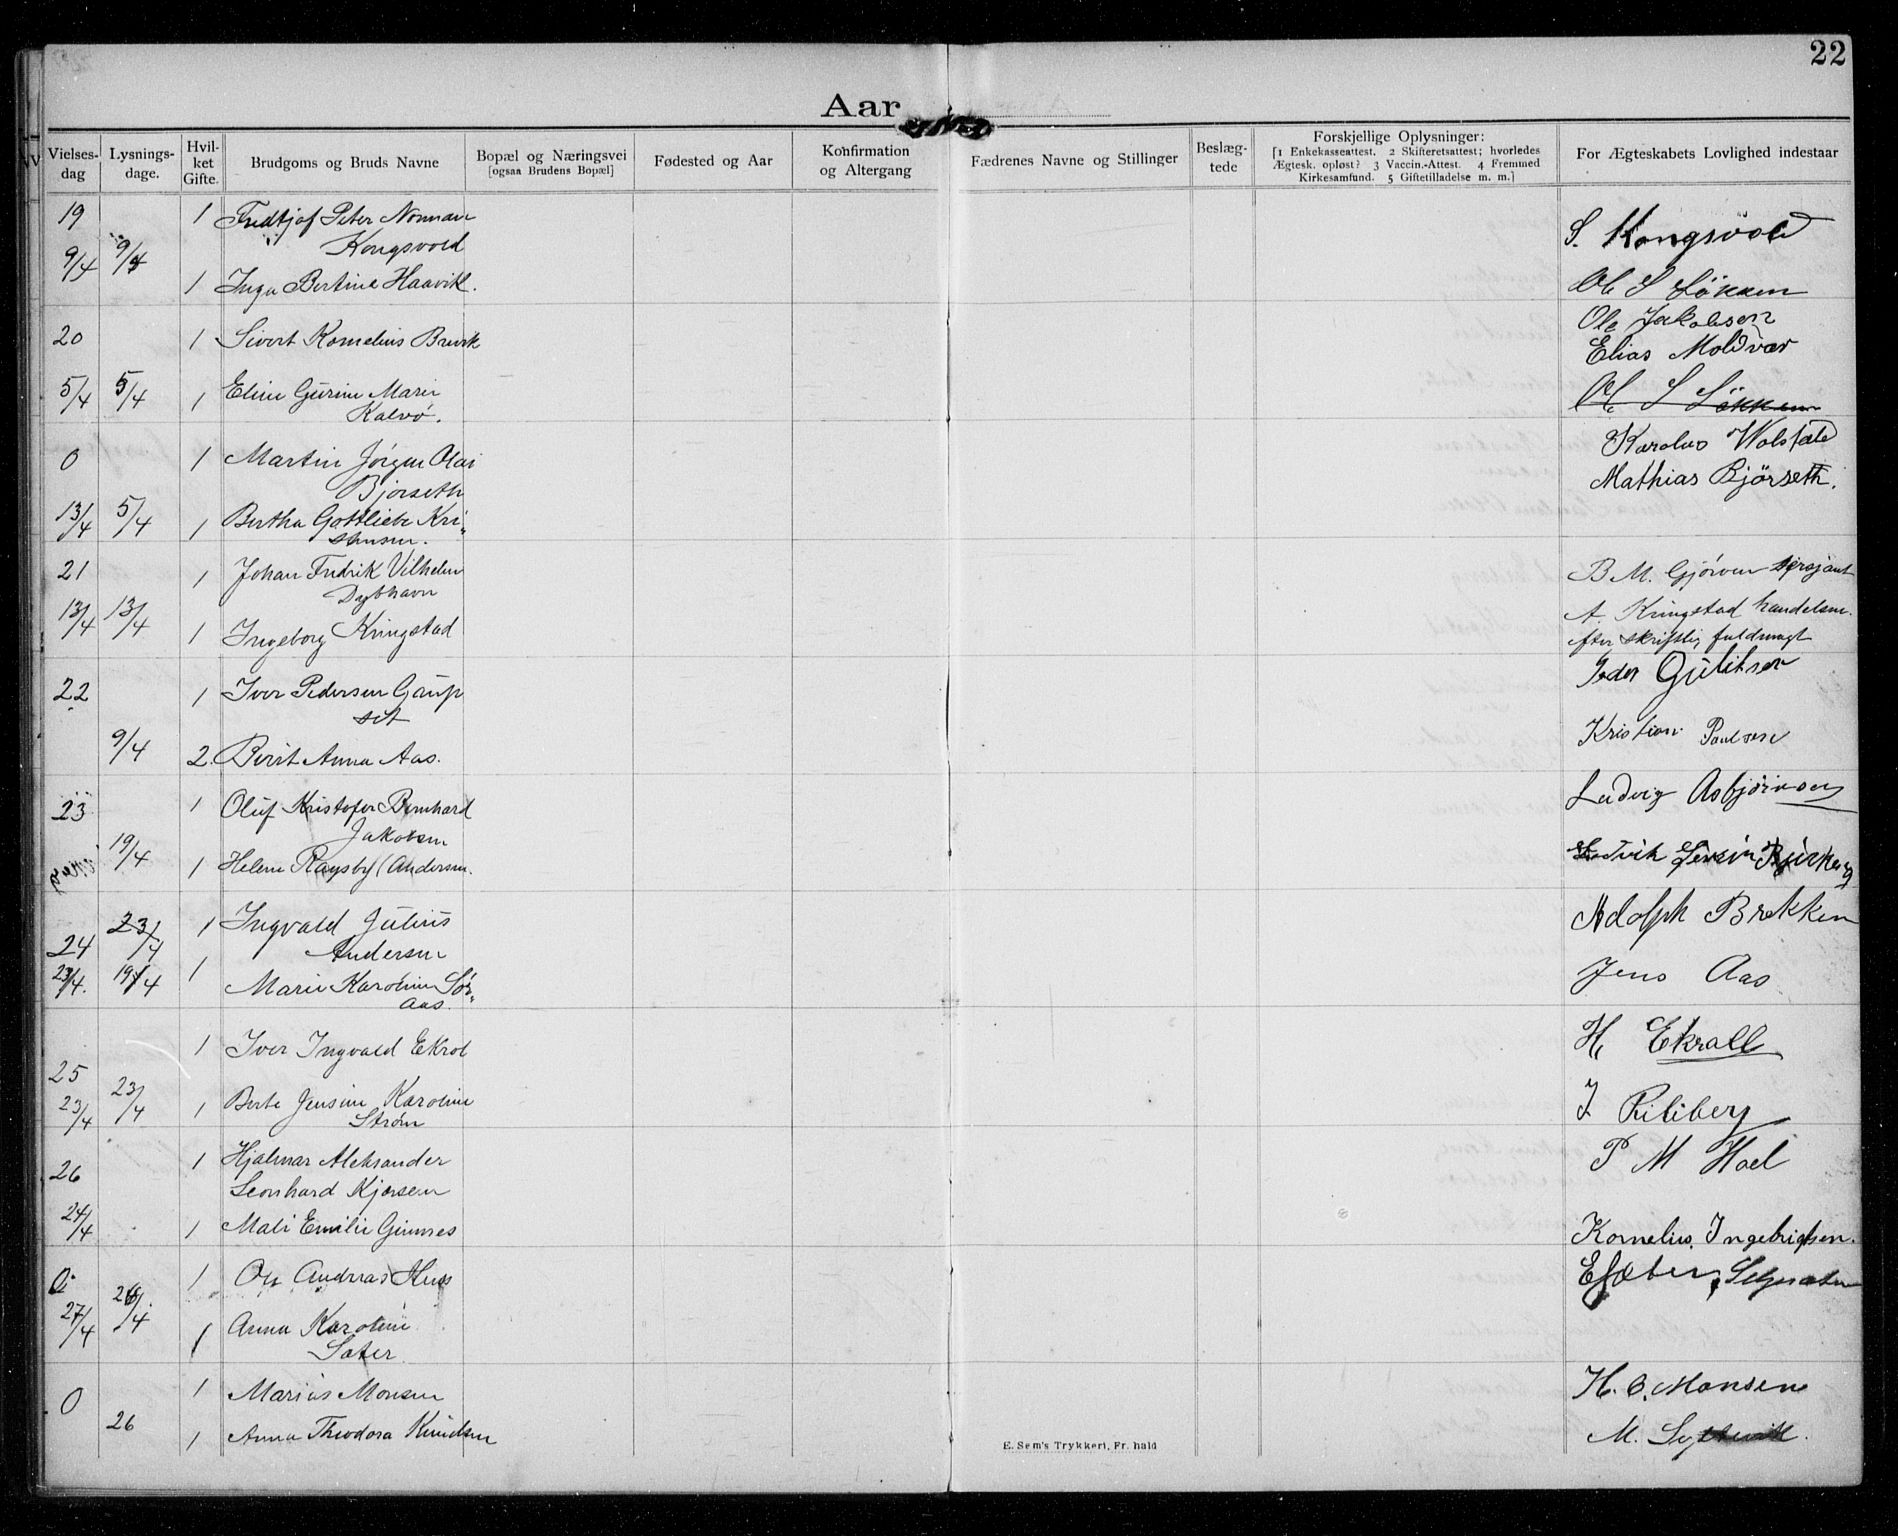 22
Aar
Vielses-dag
Lysnings-dage.
Hvil-ket Gifte.
Brudgoms og Bruds Navne
Bopæl og Næringsvei
[ogsaa Brudens Bopæl]
Fødested og Aar
Konfirmation og Altergang
Fædrenes Navne og Stillinger
Beslæg-tede
Forskjellige Oplysninger:
[1 Enkekasseattest. 2 Skifteretsattest; hvorledes
Ægtesk. opløst? 3 Vaccin.-Attest. 4 Fremmed
Kirkesamfund. 5 Giftetilladelse m. m.]
For Ægteskabets Lovlighed indestaar
19 1 Fredtjof Peter Norman
Kongsvold S. Kongsvold
9/4 9/4
1 Inga Bertine Haavik. Ole S Løkken
20 1 Sivert Kornelius Brevik Ole Jakobsen
Elias Moldvær
5/4 5/4 1 Eline Gurine Marie
Kalvø. Ole S Løkken
0 1 Martin Jørgen Olai Karolus
Bjørseth Mathias Bjørseth.
13/4 5/4 1 Bertha Gottliebe Kri-
stensen.
21 1 Johan Fredrik Vilhelm B M. Gjørven sersjant
Dybhavn
13/4 13/4 1 Ingeborg Kringstad A. Kringstad handelsm.
efter skriftlig fuldmagt
22 1 Iver Pedersen Grup
set Peder Gulliksen
9/4 2. Berit Anna Aas. Kristian Paulsen
23 1 Oluf Kristofer Bernhard Ludvig Asbjørnsen
Jakobsen
19/4 1 Helene Raysby (Andersen.
24 23/4 1 Ingvald Julius Adolph Brekken
Andersen
23/4. 19/4 1 Marie Karoline Sør-
aas. Jens Aas
25 1 Iver Ingvald Ekrol H. Ekrall
23/4 23/4 1 Berte Jensine Karoline
Strøm
26 1 Hjalmar Aleksander P M Hoel
Leonhard Kjørsem
24/4 1 Mali Emilie Gimnes Kornelius Ingebrigtsen.
0 1 Ole Andreas Hus
27/4 26/4 1 Anna Karoline
Sæter
0 1 Marius Monsen H. O. Monsen
26 1 Anna Theodora Knudsen M.
E. Sem's Trykkeri, Fr.hald